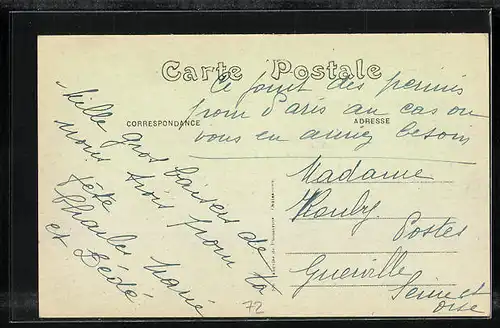 Carte Postale
CORRESPONDANCE
ADRESSE
Mille gros baisers de
nous trois pour ta
fête
Charles Marie
et Dédé
Ce sont des permis
pour Paris au cas ou
vous en auriez besoin
Madame
Postes
Guerville
Seine et
oise
72